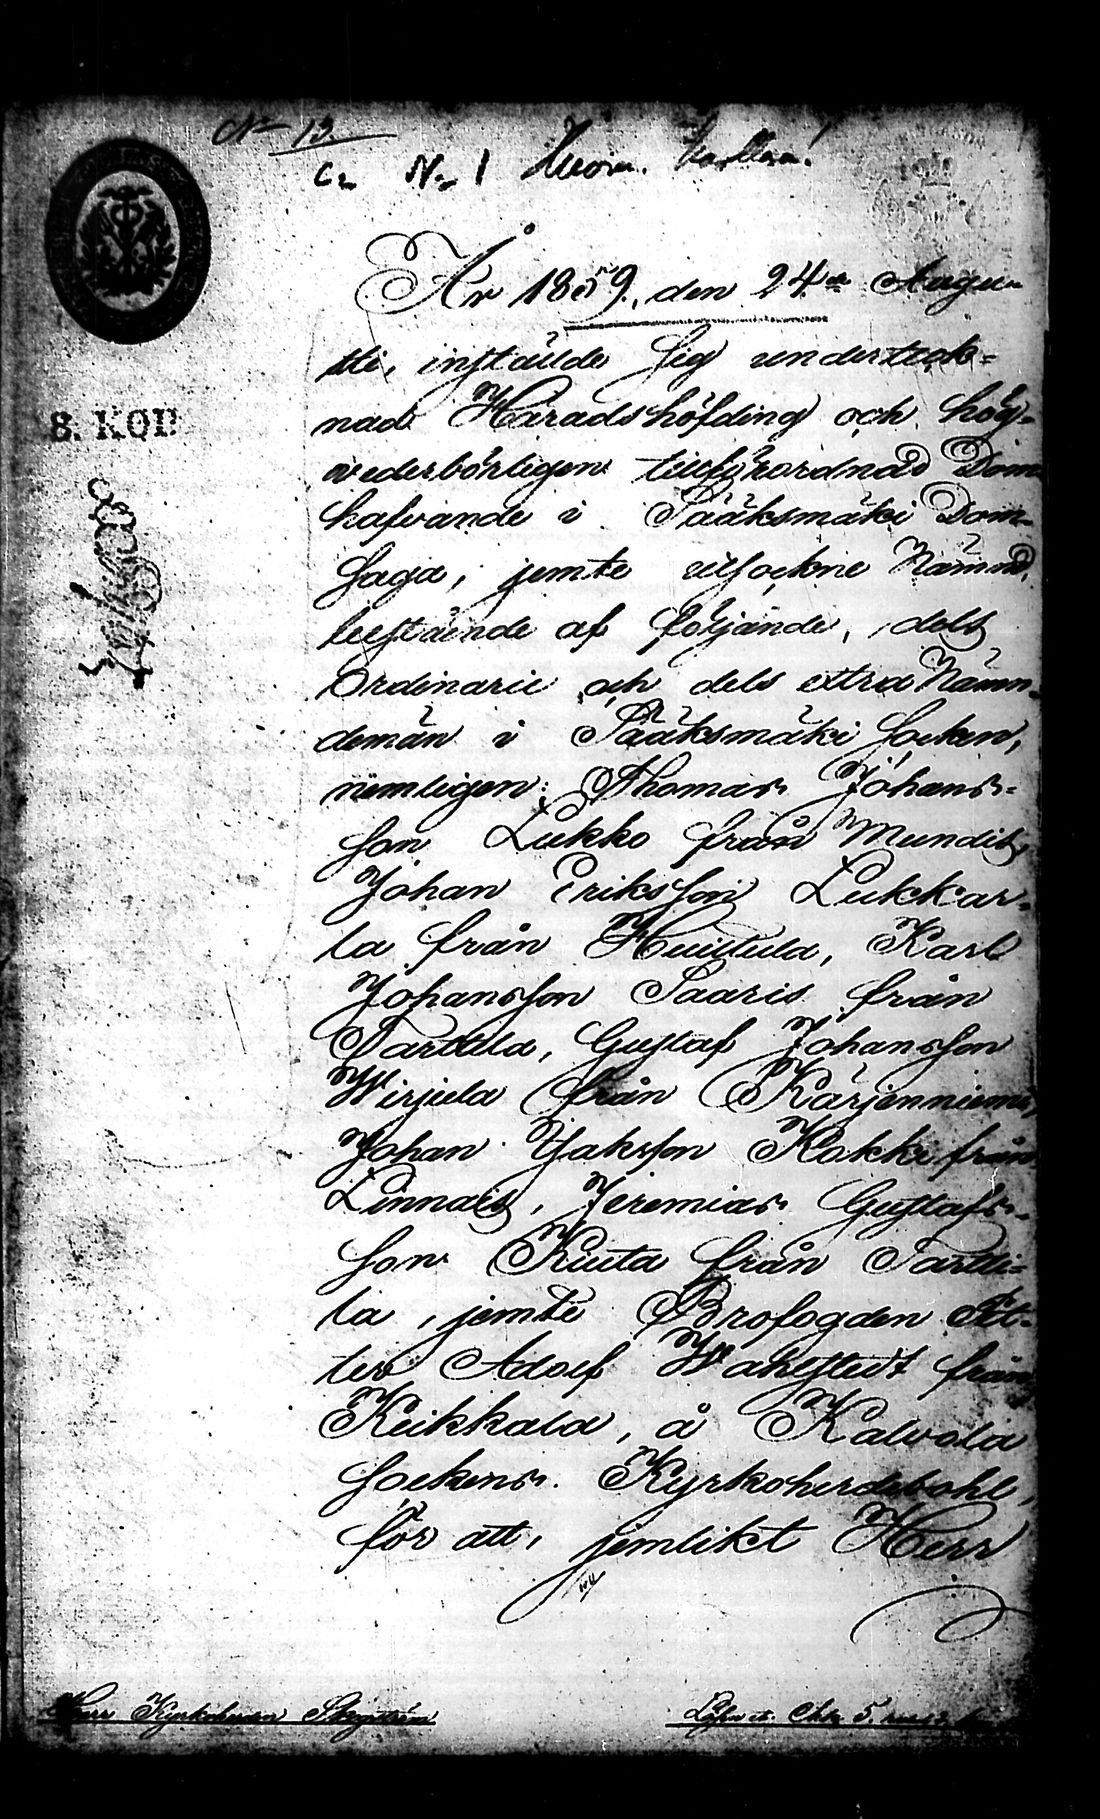 No 13
C. No 1
År 1859, den 24de Augu-
sti, instälde sig undertek-
nad Häradshöfding och hög-
vederbörligen tillförordnad Dom
hafvande i Pääksmäki Dom-
saga, jemte utsockne Nämnd,
bestående af följande, dels
Ordinarie och dels extra Nämn-
demän i Sääksmäki Socken,
nemligen: Thomas Johans-
son Lukko från Mundis,
Johan Eriksson Lukkar-
la från Huittula, Karl
Johansson Saaris från
Tarttila, Gustaf Johansson
Wirjula från Kärjenniemi,
Johan Jaksson Kokki från
Linnais, Jeremias Gustafs-
son Kiuta från Tartti-
la, jemte Brofogden Pet-
ter Adolf Wahlstedt från
Keikkala, å Kalvola
Sockens Kyrkoherdebohl,
för att, jemlikt Herr
8. KOP.
Herr Kyrkoherden
Lösen